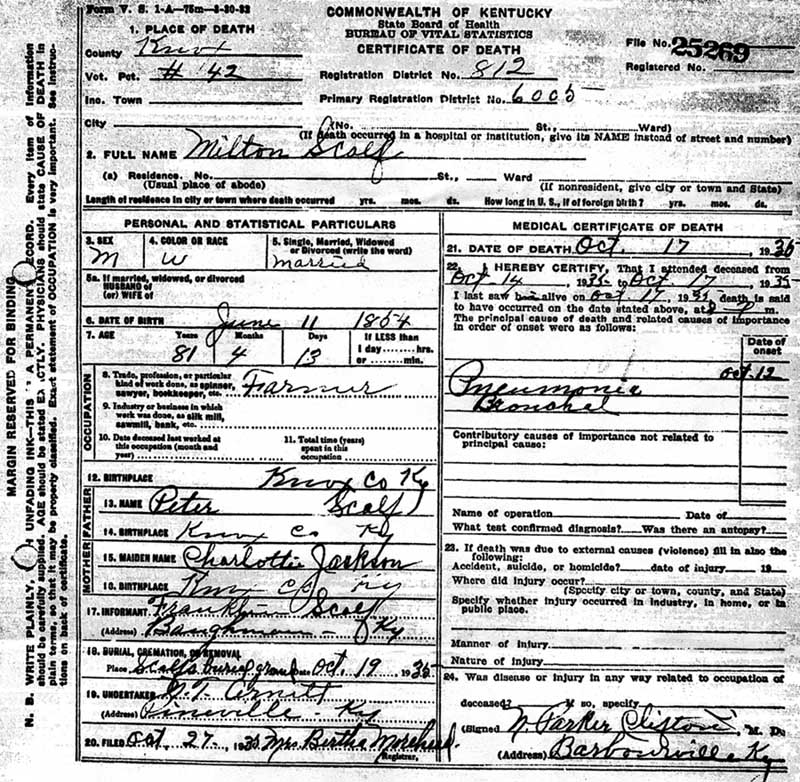 Form V. S. 1-A—75m—8-30-32
COMMONWEALTH OF KENTUCKY
State Board of Health
BUREAU OF VITAL STATISTICS
CERTIFICATE OF DEATH
1. PLACE OF DEATH
County Knox
Vot. Pct. # 42
Inc. Town
File No. 25269
Registered No.
Registration District No. 812
Primary Registration District No. 6005
City (No. St., Ward)
(If death occurred in a hospital or institution, give its NAME instead of street and number)
2. FULL NAME Milton Scalf
(a) Residence. No. St., Ward
(Usual place of abode) (If nonresident, give city or town and State)
Length of residence in city or town where death occurred yrs. mos. ds. How long in U. S., if of foreign birth? yrs. mos. ds.
PERSONAL AND STATISTICAL PARTICULARS
3. SEX 4. COLOR OR RACE 5. Single, Married, Widowed
or Divorced (write the word)
M W Married
5a. If married, widowed, or divorced
HUSBAND of
(or) WIFE of
6. DATE OF BIRTH June 11 1854
7. AGE Years Months Days If LESS than
1 day hrs.
81 4 13 or min.
OCCUPATION
8. Trade, profession, or particular
kind of work done, as spinner,
sawyer, bookkeeper, etc. Farmer
9. Industry or business in which
work was done, as silk mill,
sawmill, bank, etc.
10. Date deceased last worked at
this occupation (month and
year)
11. Total time (years)
spent in this
occupation
12. BIRTHPLACE Knox Co Ky
FATHER
13. NAME Peter Scalf
14. BIRTHPLACE Knox Co Ky
MOTHER
15. MAIDEN NAME Charlottie Jackson
16. BIRTHPLACE Knox Co Ky
17. INFORMANT Franklin Scalf
(Address) Baughman - Ky
18. BURIAL, CREMATION, OR REMOVAL
Place Scalfs burial ground Date Oct. 19 1935
19. UNDERTAKER Arnett
(Address) Pineville - Ky
20. FILED Oct. 27 - 1935 Mrs. Bertha Morehead.
Registrar.
MEDICAL CERTIFICATE OF DEATH
21. DATE OF DEATH Oct. 17 1935
22. I HEREBY CERTIFY, That I attended deceased from
Oct 14 1935 to Oct. 17 1935
I last saw alive on Oct. 17, 1935 death is said
to have occurred on the date stated above, at m.
The principal cause of death and related causes of importance
in order of onset were as follows:
Date of
onset
Oct. 12
Pneumonia
Bronchal
Contributory causes of importance not related to
principal cause:
Name of operation Date of
What test confirmed diagnosis? Was there an autopsy?
23. If death was due to external causes (violence) fill in also the
following:
Accident, suicide, or homicide? date of injury 19
Where did injury occur?
(Specify city or town, county, and State)
Specify whether injury occurred in industry, in home, or in
public place.
Manner of injury
Nature of injury
24. Was disease or injury in any way related to occupation of
deceased? If so, specify
(Signed) N. Parker Clifton, M. D.
(Address) Barbourville Ky
MARGIN RESERVED FOR BINDING
N. B. WRITE PLAINLY, UNFADING INK—THIS A PERMANENT RECORD. Every item of information
should be carefully supplied. AGE should be stated EXACTLY. PHYSICIANS should state CAUSE OF DEATH in
plain terms, so that it may be properly classified. Exact statement of OCCUPATION is very important. See instruc-
tions on back of certificate.